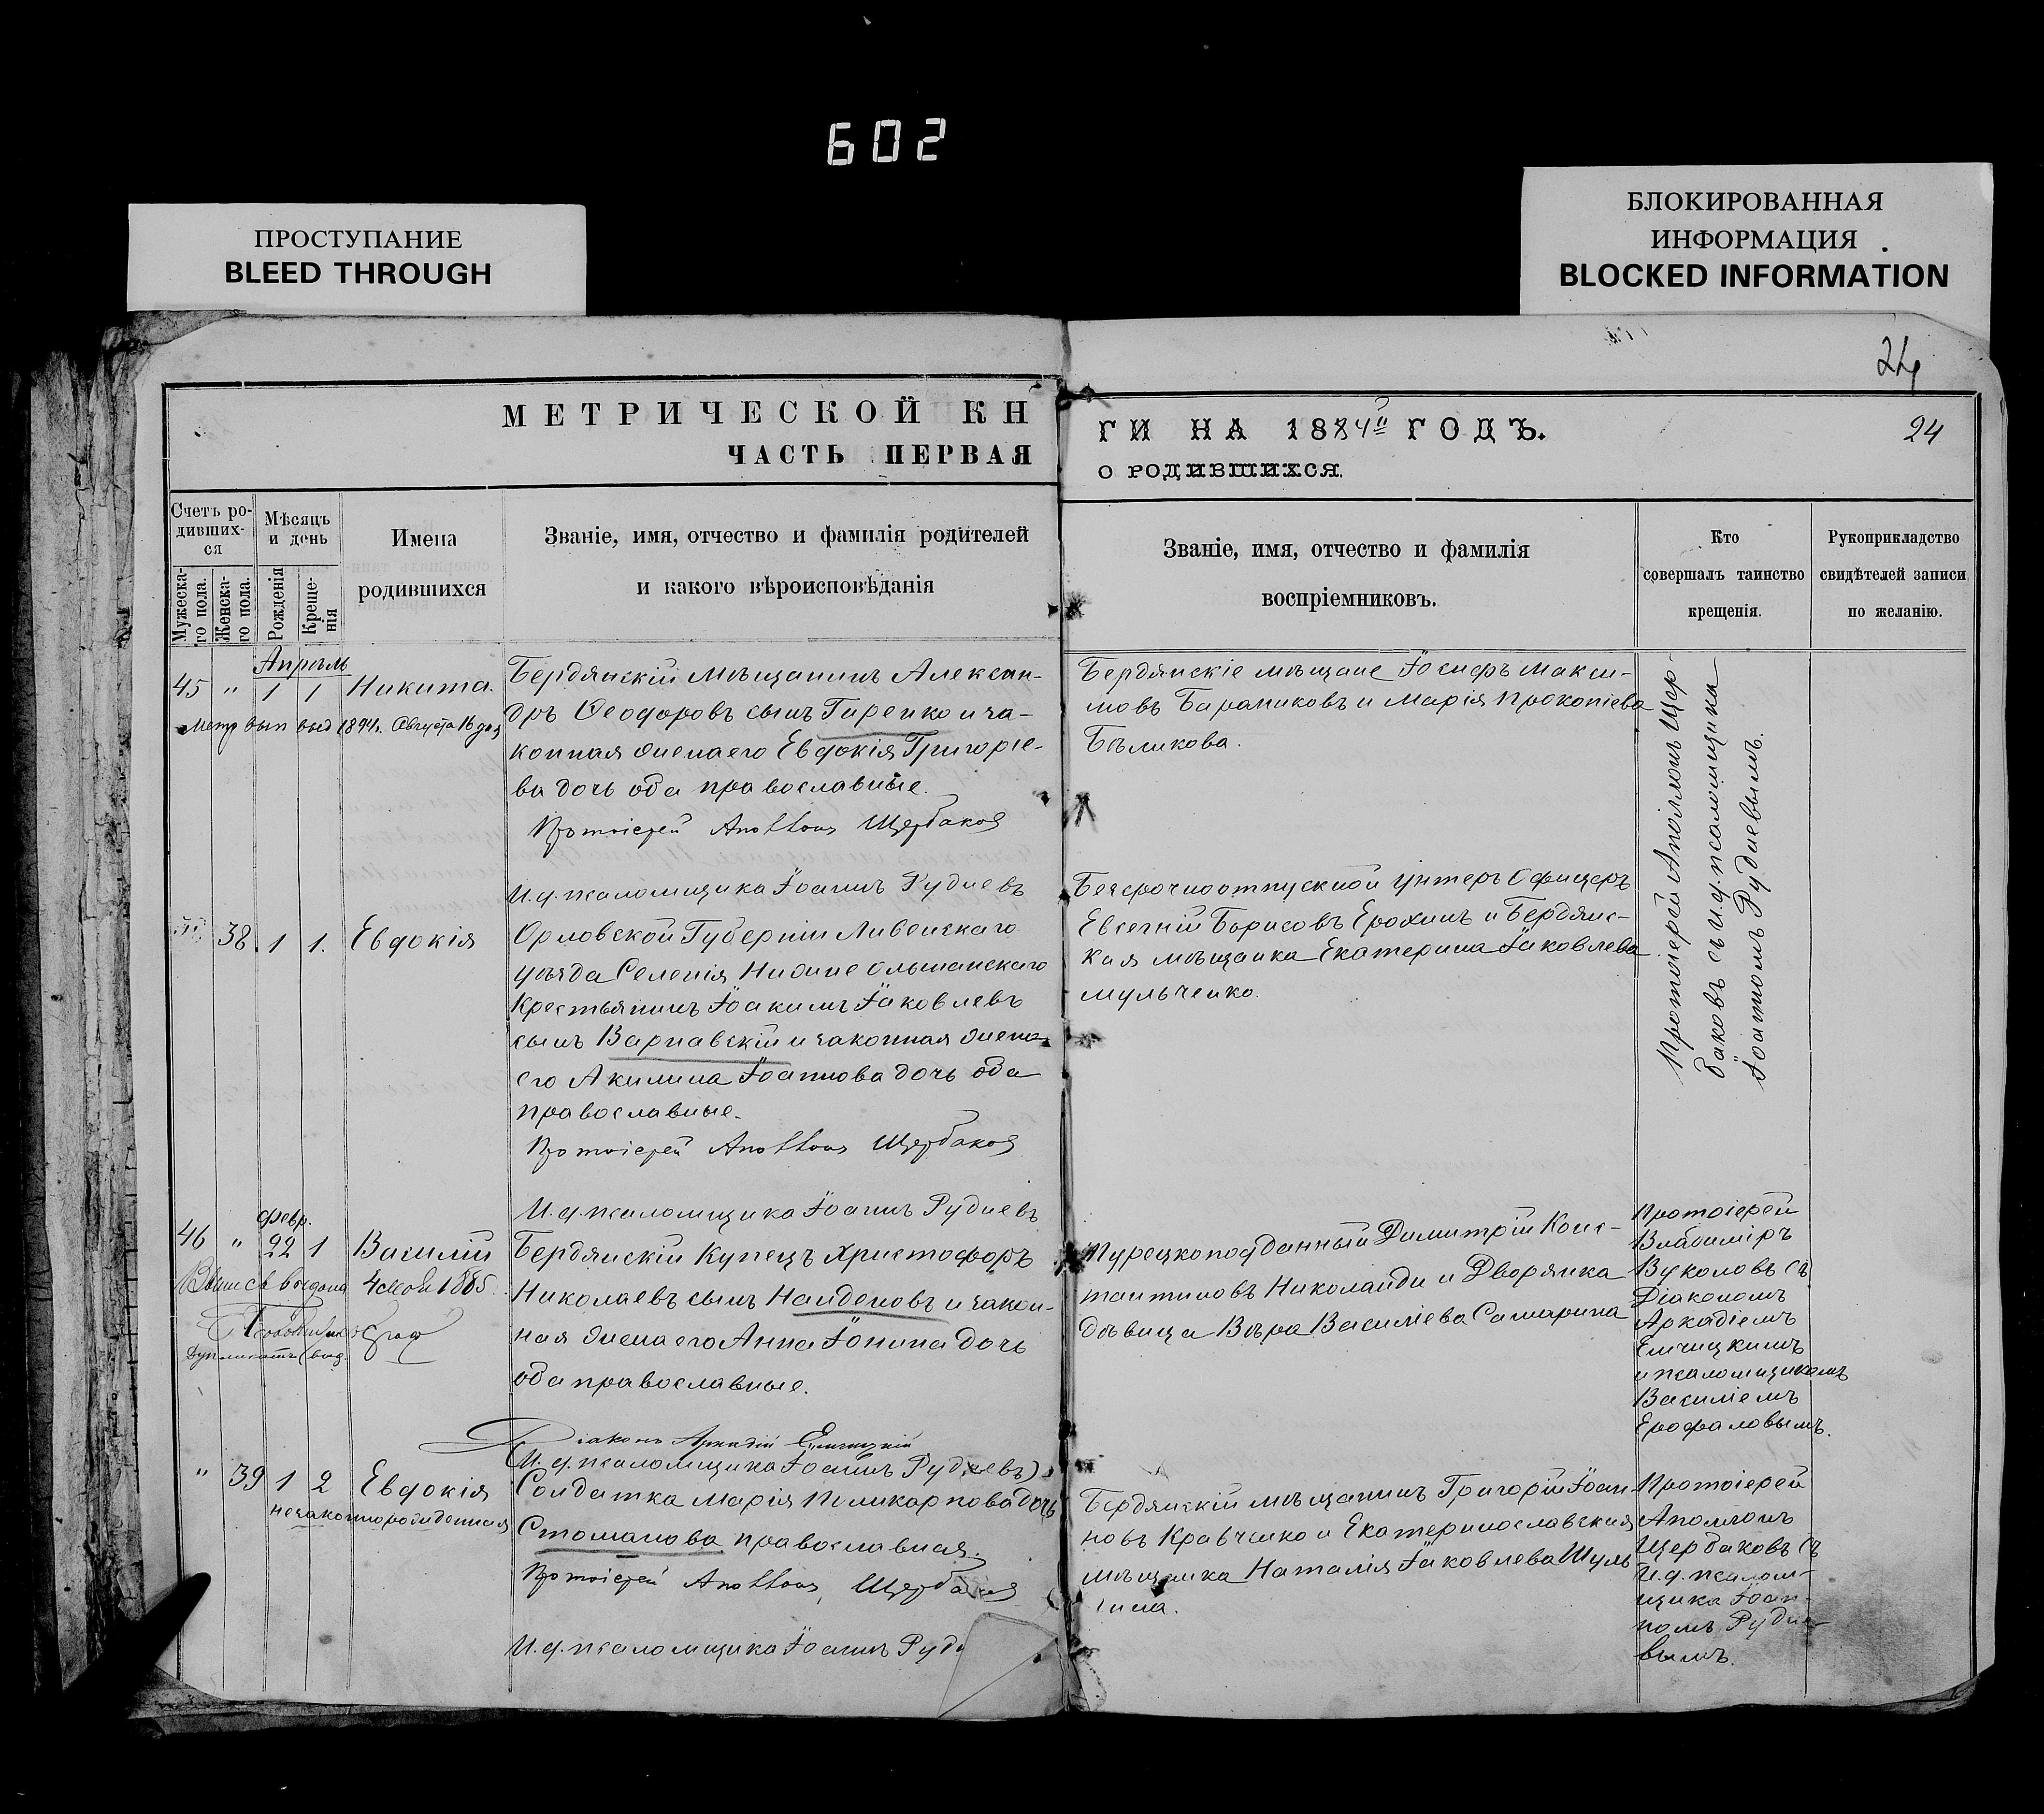 602
ПРОСТУПАНИЕ
BLEED THROUGH
БЛОКИРОВАННАЯ
ИНФОРМАЦИЯ
BLOCKED INFORMATION
24
МЕТРИЧЕСКОЙ КН
ЧАСТЬ ПЕРВАЯ
ГИ НА 1884й ГОДЪ.
О РОДИВШИХСЯ.
24
Счетъ ро-
дивших-
ся
Мужеска-
го пола.
Женска-
го пола.
Мѣсяцъ
и день
Рожденія
Креще-
нія
Имена
родившихся
Званіе, имя, отчество и фамилія родителей
и какого вѣроисповѣданія
Званіе, имя, отчество и фамилія
воспріемниковъ.
Кто
совершалъ таинство
крещенія.
Рукоприкладство
свидѣтелей записи
по желанію.
Апрѣль
45 " 1 1 Никита.
Метр вып выд 1894г. Августа 16 дня
Бердянскій Мѣщанинъ Алексан-
дръ Ѳеодоровъ сынъ Гиренко и за-
конная жена его Евдокія Григорíе-
ва дочь оба православные.
Протоіерей Аполлонъ Щербаковъ
И.д. псаломщика Іоаннъ Рудневъ
Бердянскіе мѣщане Іосифъ Макси-
мовъ Баранниковъ и Марія Прокопіева
Бѣликова.
Протоіерей Аполлонъ Щер-
баковъ съ И.д. псаломщика
Іоанномъ Рудневымъ.
38 1 1. Евдокія
Орловской Губерніи Ливенскаго
уѣзда Селенія Нижне Ольшанскаго
Крестьянинъ Іоакимъ Іаковлевъ
сынъ Варнавскій и законная жена
его Акилина Іоаннова дочь оба
православные.
Протоіерей Аполлонъ Щербаковъ
И.д. псаломщика Іоаннъ Рудневъ
Безсрочноотпускной Унтеръ Офицеръ
Евгеній Борисовъ Ерохинъ и Бердянс-
кая мѣщанка Екатерина Іаковлева
Мульченко.
февр.
46 " 22 1 Василій
Выпись выдана 4 1885
Дупликатъ выд.
Бердянскій Купецъ Христофоръ
Николаевъ сынъ Найденовъ и закон-
ная жена его Анна Іонина дочь
оба православные.
Діаконъ Аркадій Елчицкій
И.д. псаломщика Іоаннъ Рудневъ
Турецкоподданный Димитрій Конс-
тантиновъ Николаиди и Дворянка
дѣвица Вѣра Василіева Самарина
Протоіерей
Владиміръ
Вуколовъ съ
Діакономъ
Аркадіемъ
Елчицкимъ
и псаломщикомъ
Василіемъ
Ерофаловымъ.
" 39 1 2 Евдокія
незаконнорожденная
Солдатка Марія Поликарпова дочь
Стоманова православная.
Протоіерей Аполлонъ Щербаковъ
И.д. псаломщика Іоаннъ Рудн
Бердянскій мѣщанинъ Григорій Іоан-
новъ Кравченко и Екатеринославская
мѣщанка Наталія Іаковлева Шуль
гина.
Протоіерей
Аполлонъ
Щербаковъ съ
И.д. псалом-
щика Іоан-
номъ Рудне-
вымъ.